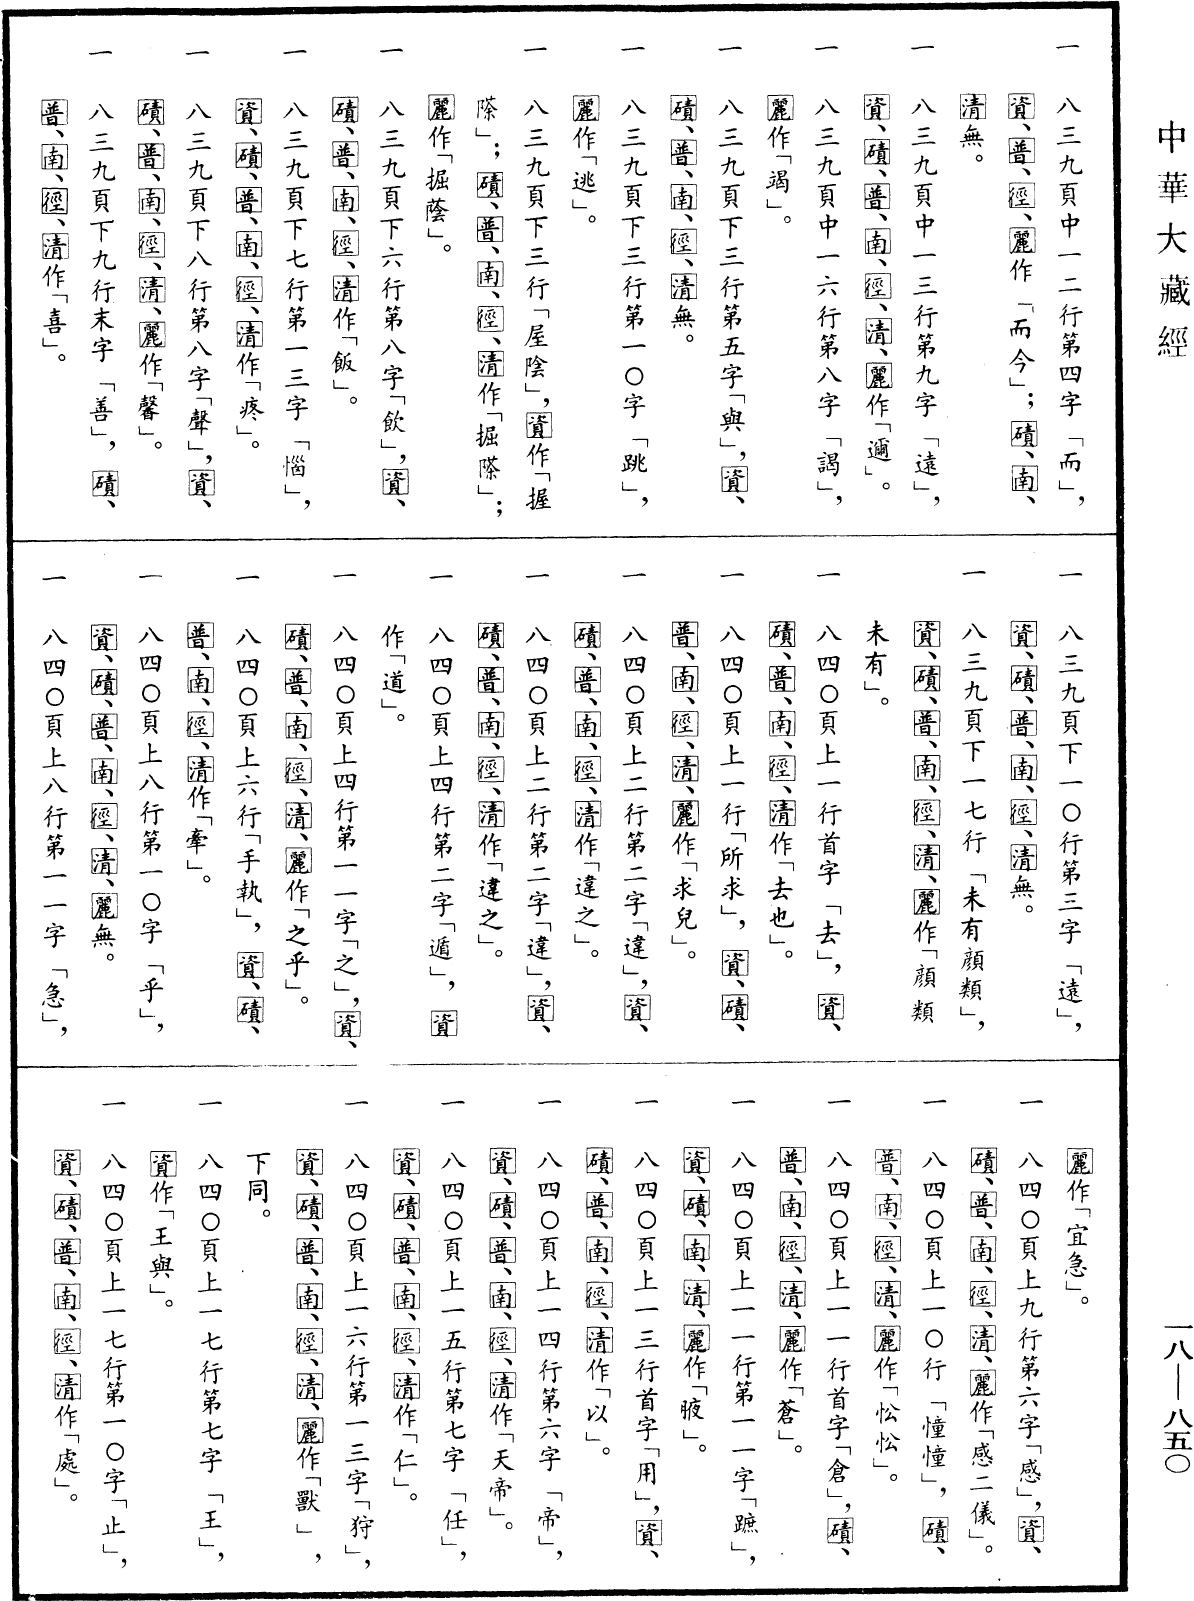 中華大藏經
一　八三九頁中一二行第四字「而」，
資、普、徑、麗作「而今」；磧、南、
清無。
一　八三九頁中一三行第九字「遠」，
資、磧、普、南、徑、清、麗作「邇」。
一　八三九頁中一六行第八字「謁」，
麗作「竭」。
一　八三九頁下三行第五字「與」，資、
磧、普、南、徑、清無。
一　八三九頁下三行第一〇字「跳」，
麗作「逃」。
一　八三九頁下三行「屋陰」，資作「握
蔭」；磧、普、南、徑、清作「掘蔭」；
麗作「掘蔭」。
一　八三九頁下六行第八字「飲」，資、
磧、普、南、徑、清作「飯」。
一　八三九頁下七行第一三字「惱」，
資、磧、普、南、徑、清作「疼」。
一　八三九頁下八行第八字「聲」，資、
磧、普、南、徑、清、麗作「馨」。
一　八三九頁下九行末字「善」，磧、
普、南、徑、清作「喜」。
一　八三九頁下一〇行第三字「遠」，
資、磧、普、南、徑、清無。
一　八三九頁下一七行「未有顔類」，
資、磧、普、南、徑、清、麗作「顔類
未有」。
一　八四〇頁上一行首字「去」，資、
磧、普、南、徑、清作「去也」。
一　八四〇頁上一行「所求」，資、磧、
普、南、徑、清、麗作「求兒」。
一　八四〇頁上二行第二字「違」，資、
磧、普、南、徑、清作「違之」。
一　八四〇頁上二行第二字「違」，資、
磧、普、南、徑、清作「違之」。
一　八四〇頁上四行第二字「遁」，資
作「道」。
一　八四〇頁上四行第一一字「之」，資、
磧、普、南、徑、清、麗作「之乎」。
一　八四〇頁上六行「手執」，資、磧、
普、南、徑、清作「牽」。
一　八四〇頁上八行第一〇字「乎」，
資、磧、普、南、徑、清、麗無。
一　八四〇頁上八行第一一字「急」，
麗作「宜急」。
一　八四〇頁上九行第六字「感」，資、
磧、普、南、徑、清、麗作「感二儀」。
一　八四〇頁上一〇行「憧憧」，磧、
普、南、徑、清、麗作「忪忪」。
一　八四〇頁上一一行首字「倉」，磧、
普、南、徑、清、麗作「蒼」。
一　八四〇頁上一一行第一一字「蹠」，
資、磧、南、清、麗作「腋」。
一　八四〇頁上一三行首字「用」，資、
磧、普、南、徑、清作「以」。
一　八四〇頁上一四行第六字「帝」，
資、磧、普、南、徑、清作「天帝」。
一　八四〇頁上一五行第七字「任」，
資、磧、普、南、徑、清作「仁」。
一　八四〇頁上一六行第一三字「狩」，
資、磧、普、南、徑、清、麗作「獸」，
下同。
一　八四〇頁上一七行第七字「王」，
資作「王與」。
一　八四〇頁上一七行第一〇字「止」，
資、磧、普、南、徑、清作「處」。
一八—八五〇